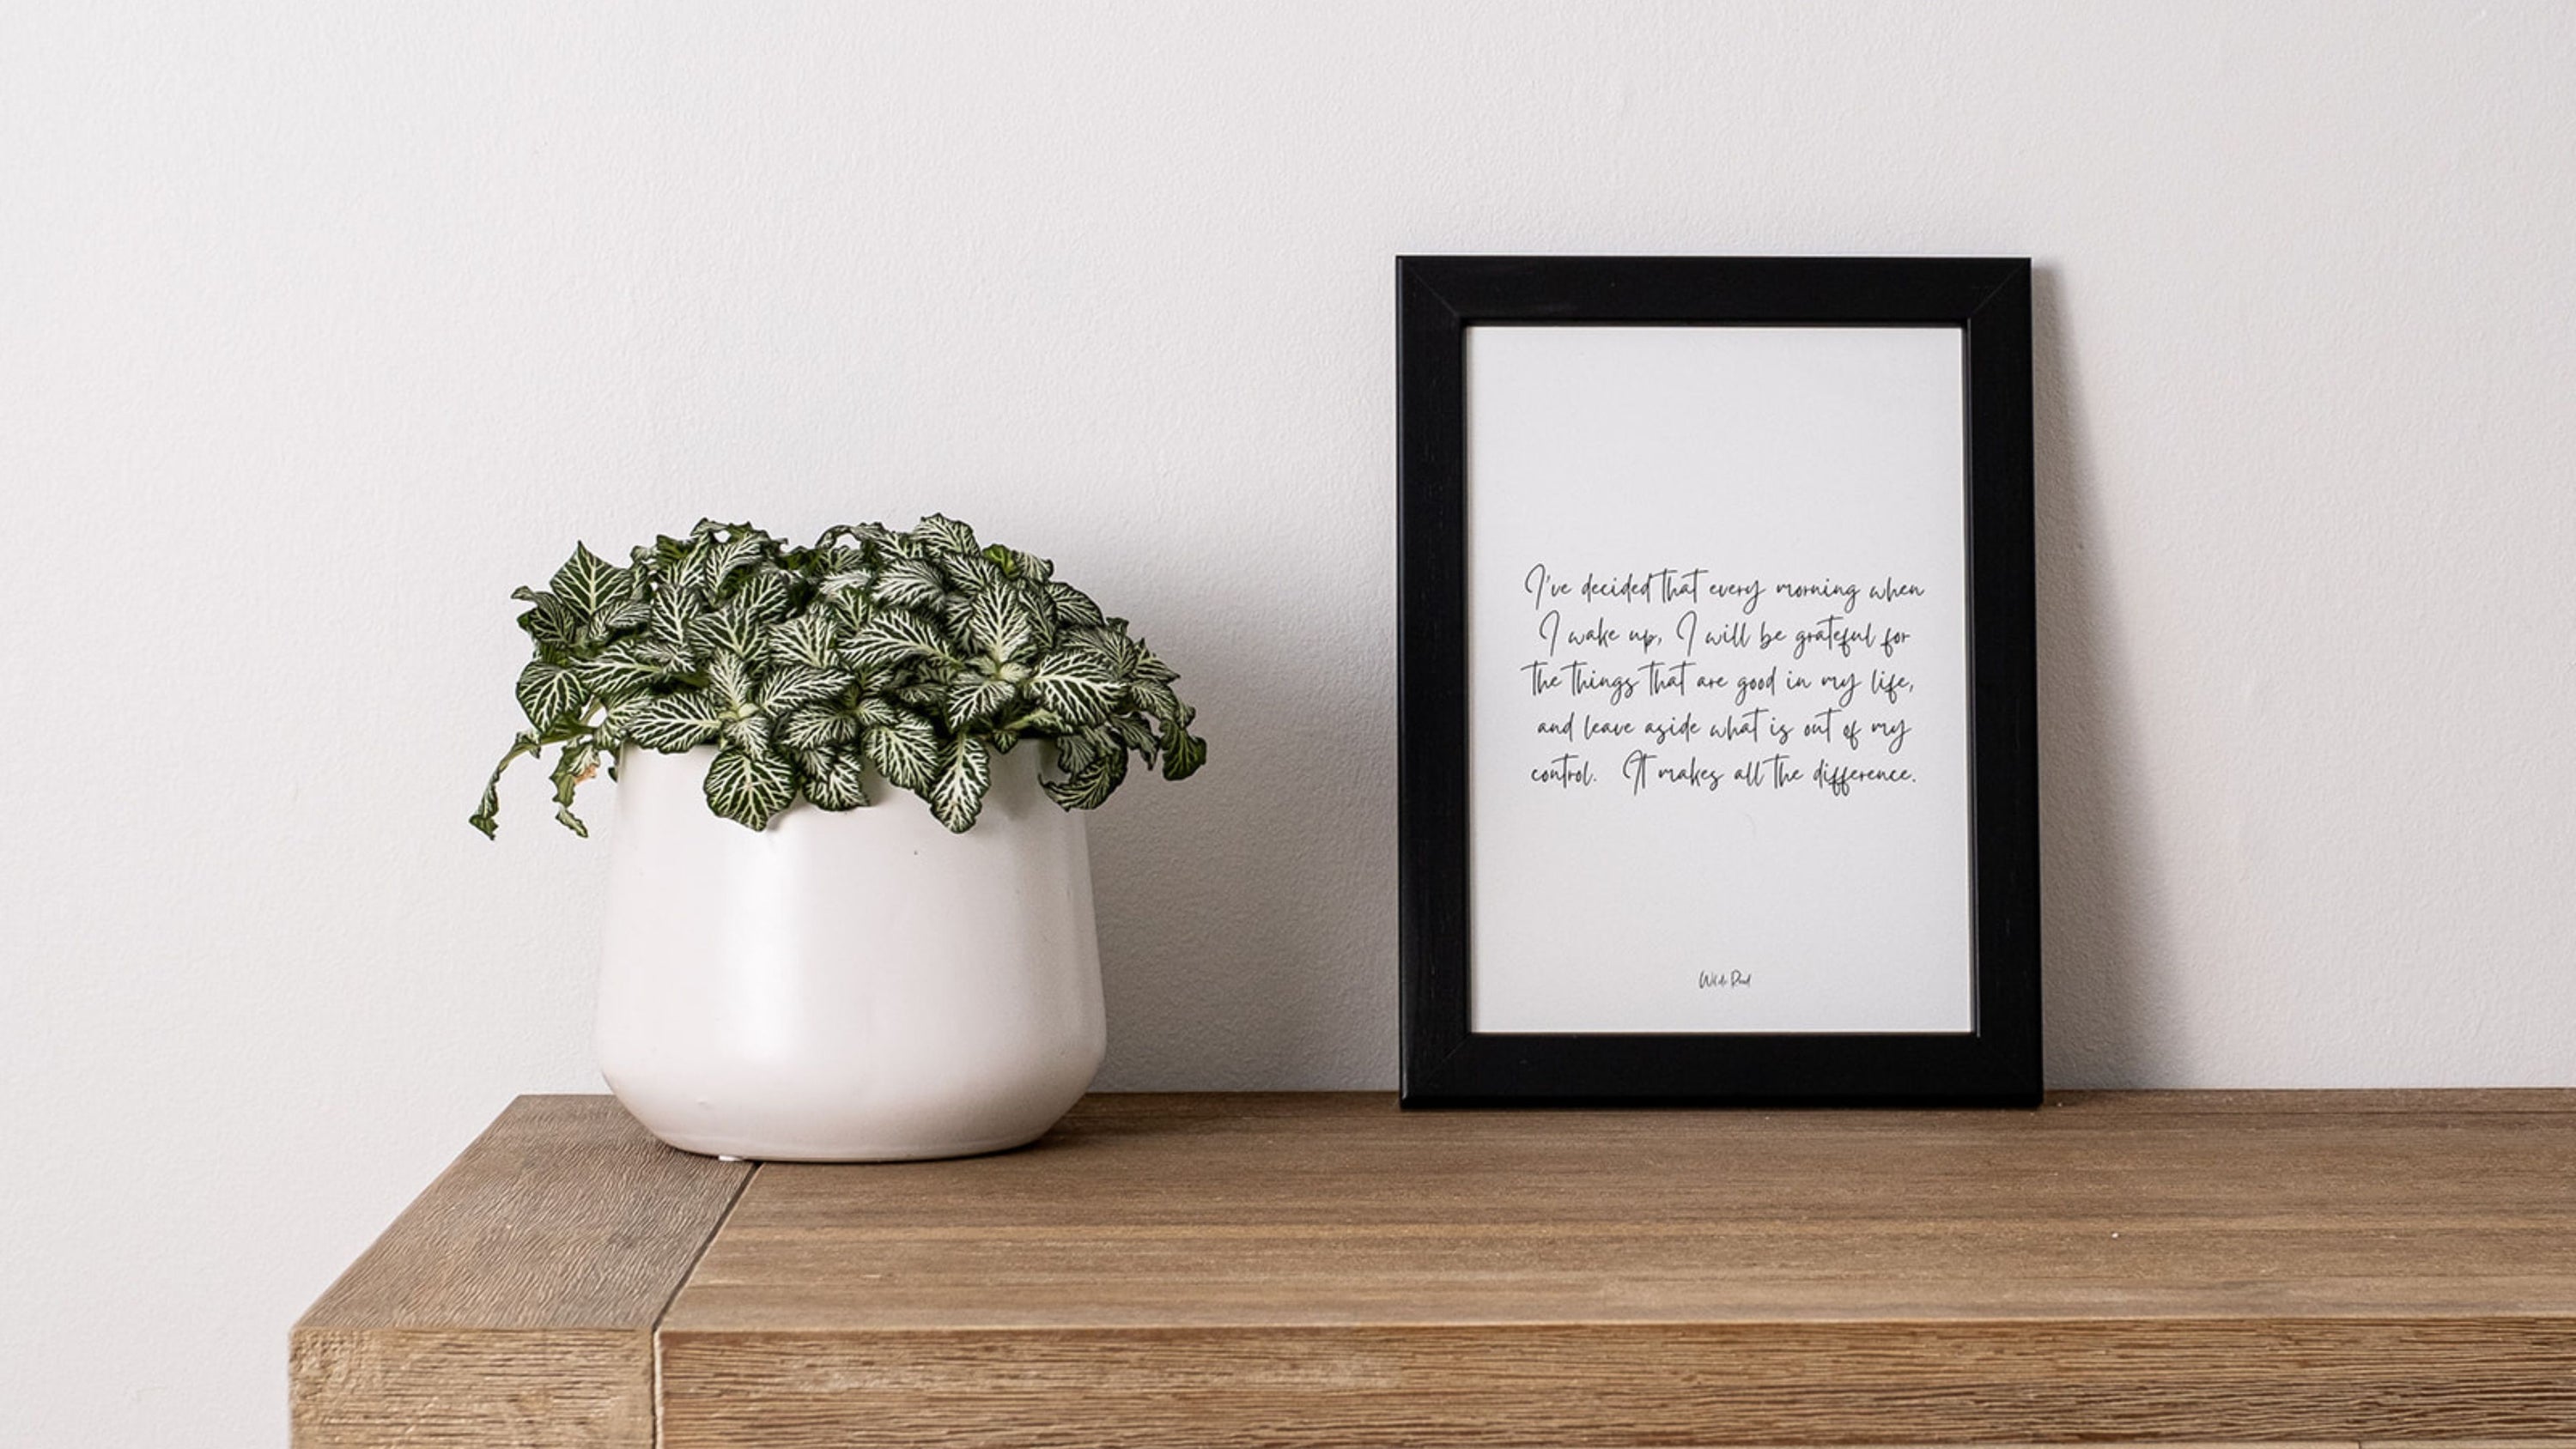 I've decided that every morning when
I wake up, I will be grateful for
the things that are good in my life,
and leave aside what is out of my
control. It makes all the difference.